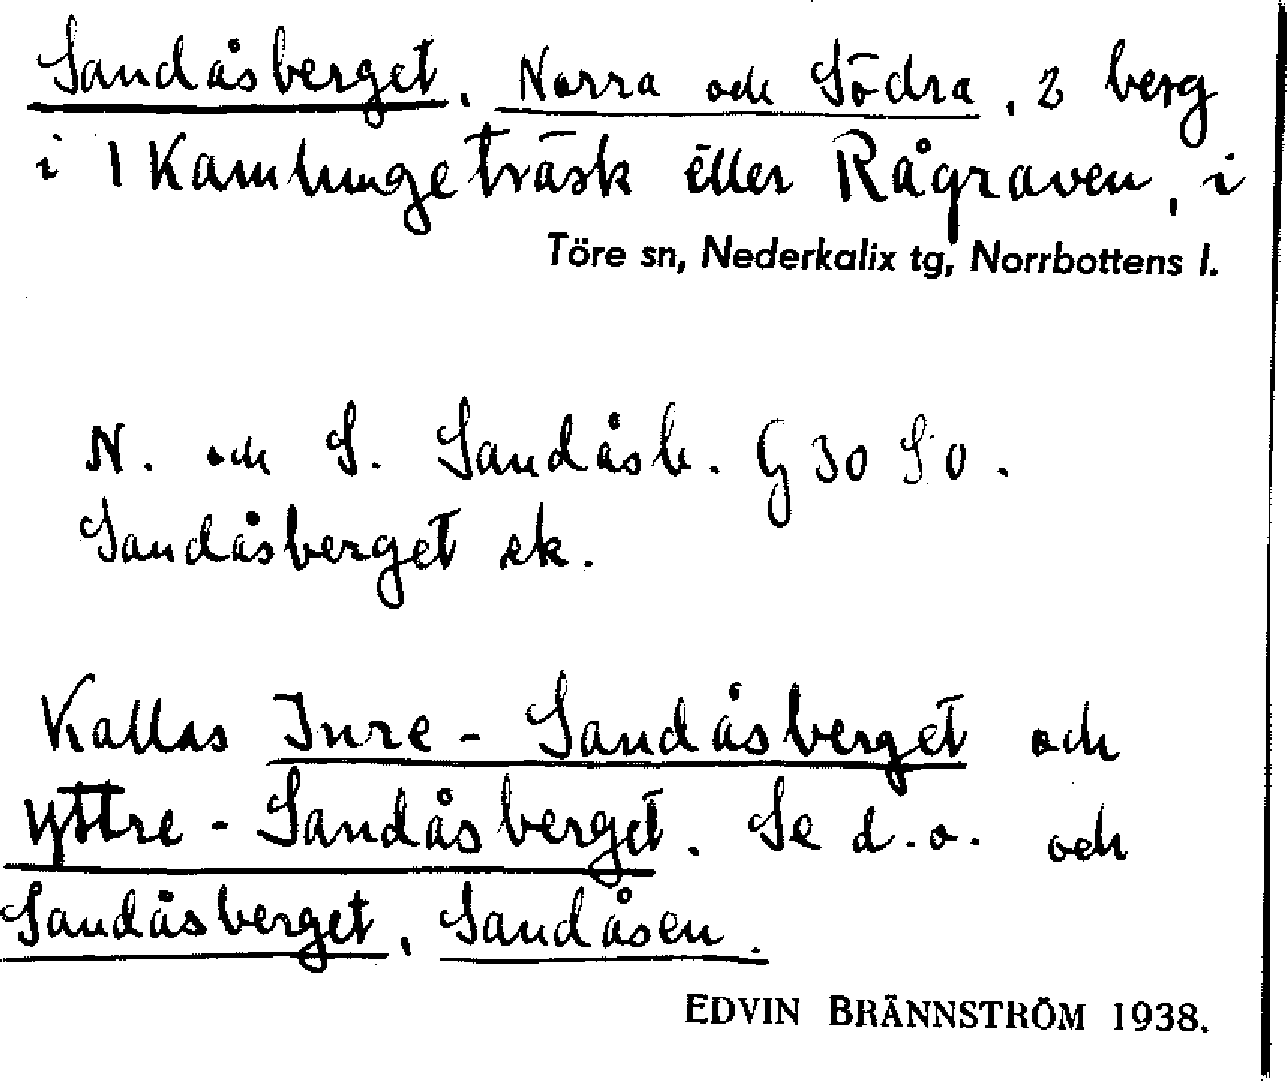 Sandåsberget, Norra och Södra, 2 berg
i 1 Kamlungeträsk eller Rågraven, i
Töre sn, Nederkalix tg, Norrbottens l.
N. och S. Sandåsb. G 30 SO.
Sandåsberget ek.
Kallas Inre-Sandåsberget och
Yttre-Sandåsberget. Se d.o. och
Sandåsberget, Sandåsen.
EDVIN BRÄNNSTRÖM 1938.